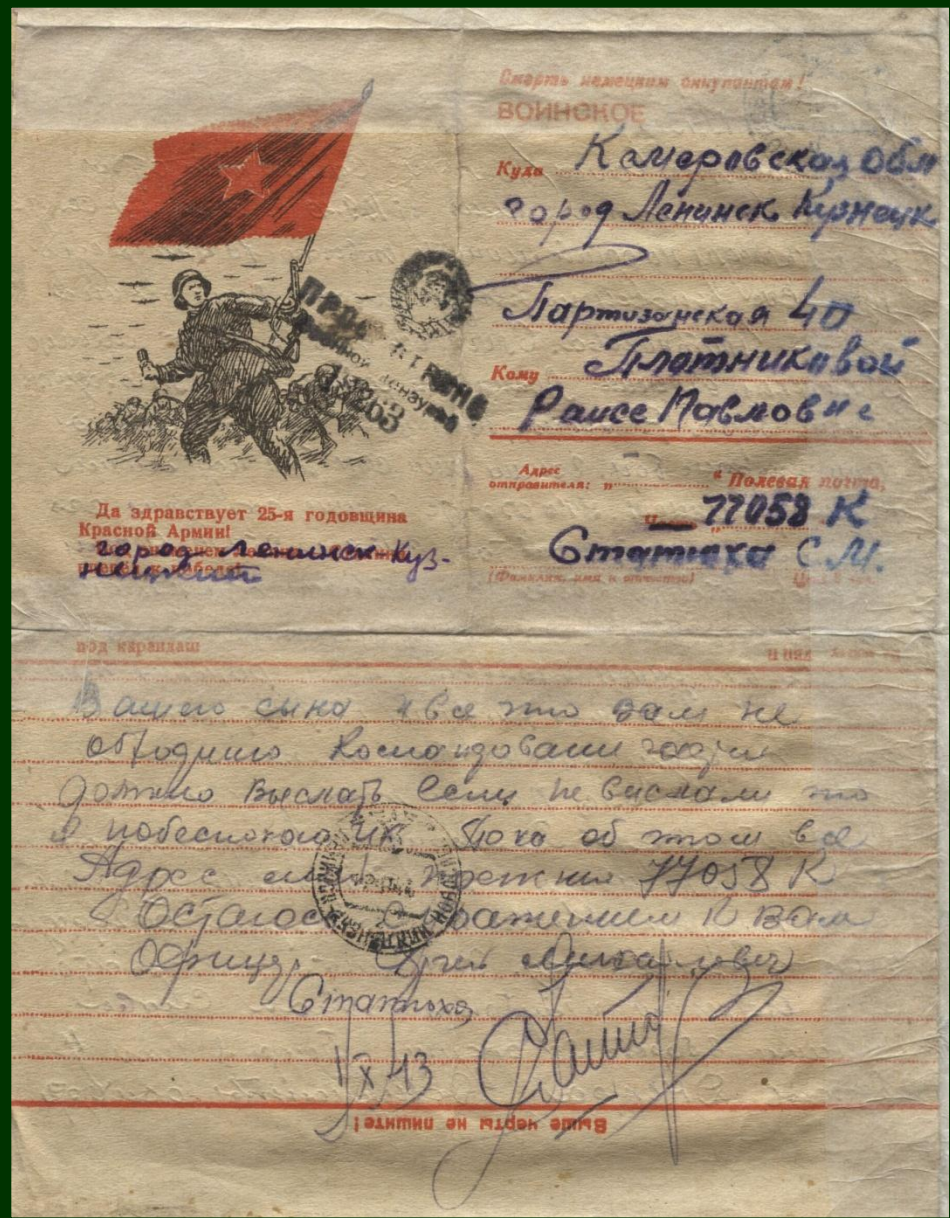 Смерть немецким оккупантам!
ВОИНСКОЕ
Куда Кемеровская обл
город Ленинск Кузнецк
Партизанская 40
Кому Плотниковой
Раисе Павловне
Адрес отправителя: „ “ Полевая почта,
77058 К
Статюха С.М.
(Фамилия, имя и отчество)
военной цензурой
13263
Да здравствует 25-я годовщина
Красной Армии!
город Ленинск Куз-
нецкий
под карандаш
Вашего сына и все это вам не
обходимо Командование части
должно выслать если не выслали то
я побеспокоюсь Пока об этом все
Адрес мой прежний 77058 К
Остаюсь с уважением к вам
Офицер Михайлович
Статюха
1/X 43
Выше черты не пишите!